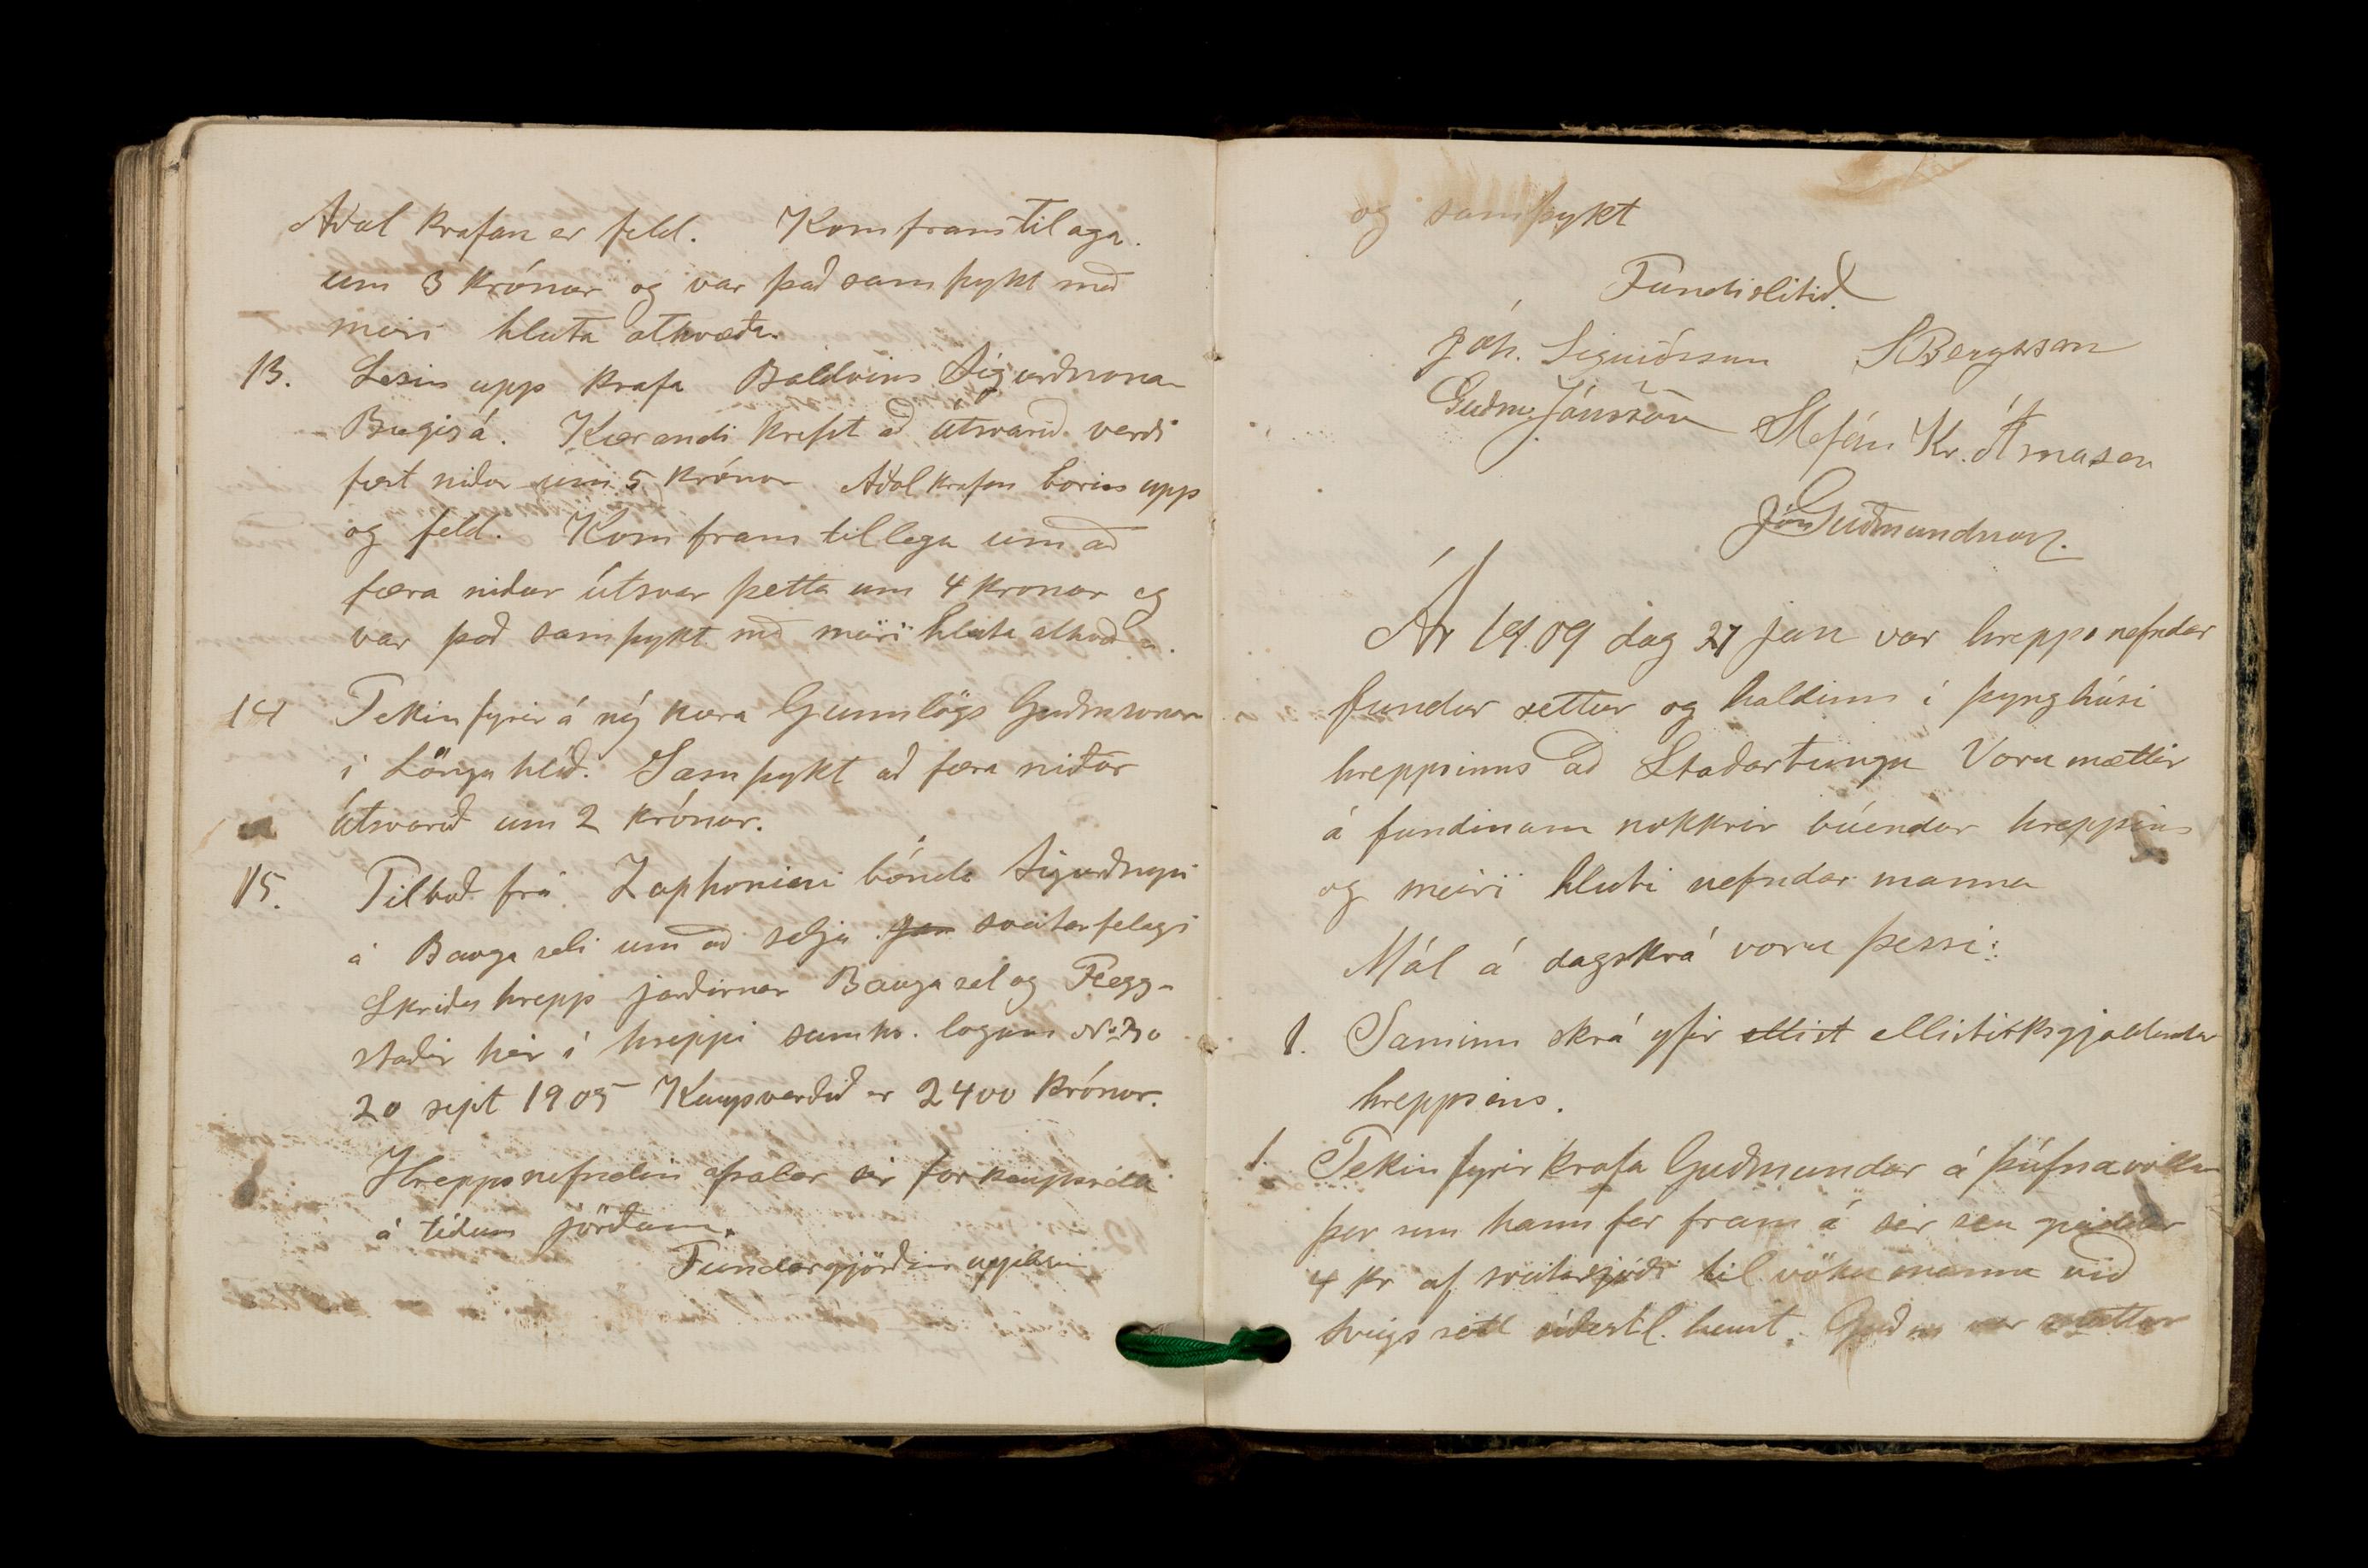 Aðal krafan er feld. Kom fram tilaga.
um 3 krónur og var það samþykt með
meiri hluta atkvæða.
13. Lesin upp krafa Baldvins Sigurðssonar
Bugisá. Kærandi krefst að útsvarið verði
fært niður um 5 krónur Aðal krafan borin upp
og feld. Kom fram tillaga um að
færa niður útsvar þetta um 4 kronur og
var það samþykt með meiri hluta atkvæða.
14 Tekin fyrir á ný kæra Gunnlögs Guðmssonar
í Lönguhlíð. Samþykt að færa niður
Útsvarið um 2 krónur.
15. Tilboð frá Zophoniasi bónda Sigurðssyni
á Bauga seli um að selja sveitarfelagi
Skriðu hrepp jarðirnar Baugasel og Flegg-
staðir hér í hreppi samkv. logum No 30
20 sept 1905 Kaupsverðið er 2400 krónur.
Hreppsnefndin afsalar sér forkaupsrétti
á téðum jörðum.
Fundargjörðin upplesin
og samþykt
Fundi slitið.
Jóh. Sigurðsson SBergsson
Guðm. Jónsson Stefán Kr. Árnason
Jón Guðmundsson.
Ár 1909 dag 27 jan var hreppsnefndar
fundur settur og haldinn í þynghúsi
hreppsinns að Staðartungu Voru mættir
á fundinum nokkrir búendur hreppsins
og meiri hluti nefndar manna
Mál á dagskrá voru þessi:
1. Saminn skrá yfir ellist ellistirksgjaldendur
hreppsins.
1. Tekin fyrir krafa Guðmundar á Þúfnavöllum
þar sem hann fer fram á sér séu greiddar
4 kr af sveitarsjóði til vöku manna við
Sveigs rétt síðastl. haust. Guðm var mættur